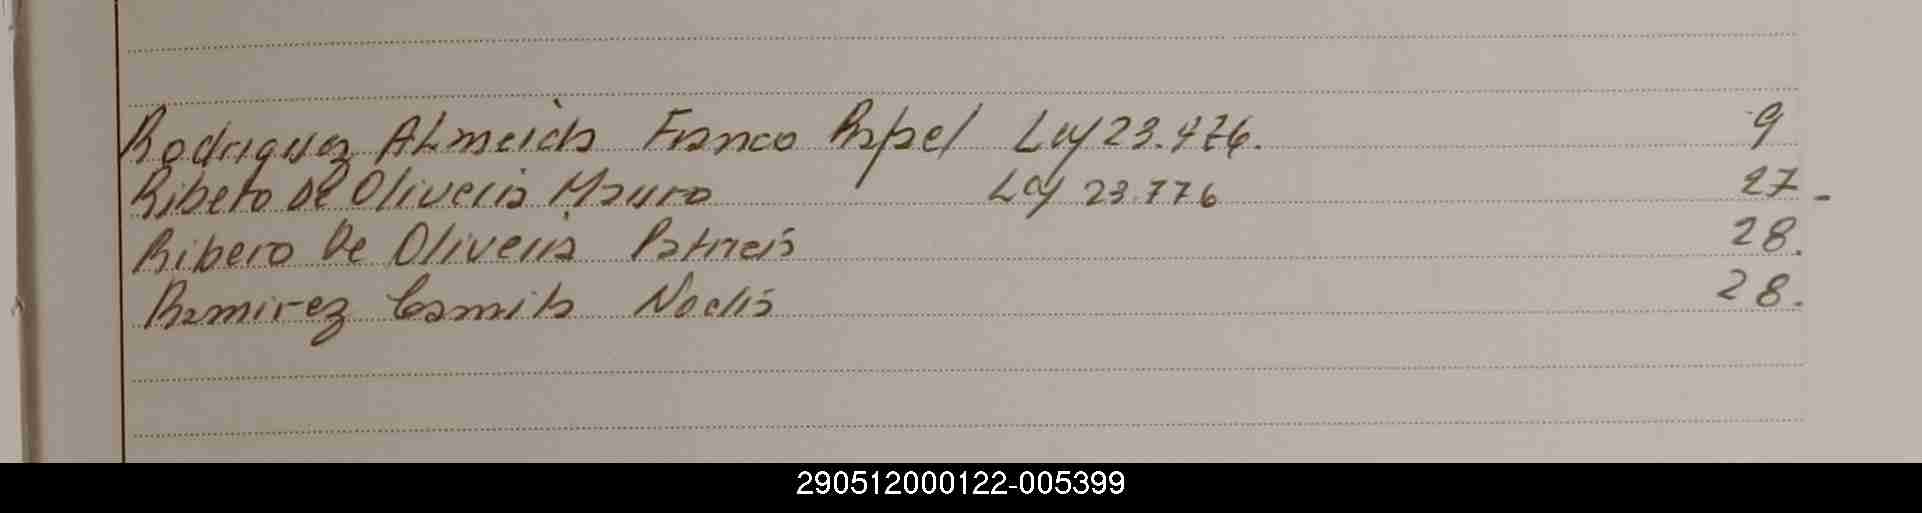 Rodriguez Almeida Franco Rafael Ley 23.476. 9
Ribero De Oliveria Mauro Ley 23.776 27-
Ribero De Oliveria Patricia 28.
Ramirez Camila Noelia 28.
290512000122-005399